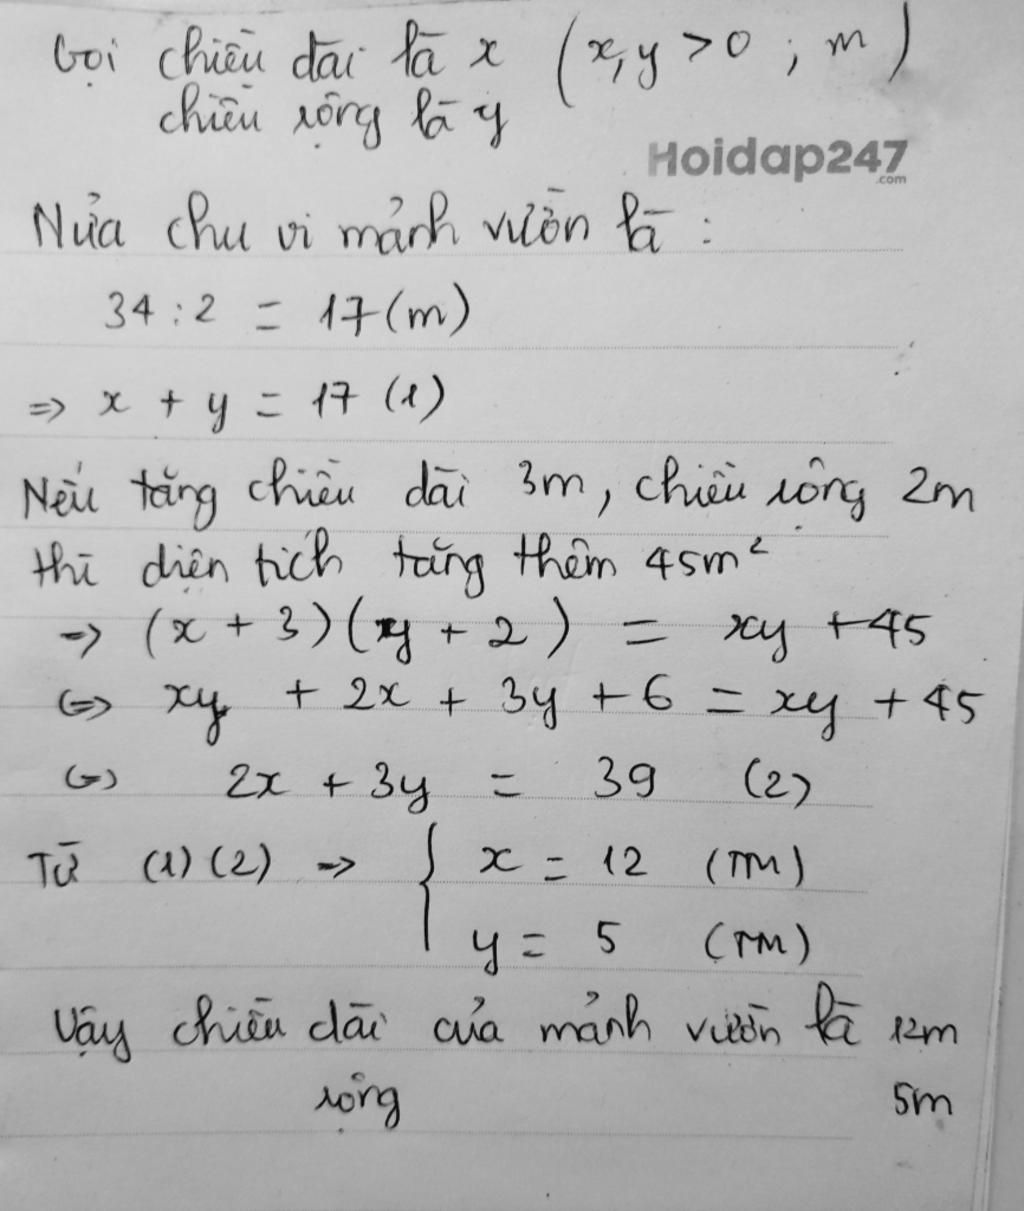 Gọi chiều dài là x (x,y > 0 ; m)
chiều rộng là y
Hoidap247
.com
Nửa chu vi mảnh vườn là :
34 : 2 = 17 (m)
=> x + y = 17 (1)
Nếu tăng chiều dài 3m, chiều rộng 2m
thì diện tích tăng thêm 45m²
=> (x + 3)(y + 2) = xy + 45
<=> xy + 2x + 3y + 6 = xy + 45
<=> 2x + 3y = 39 (2)
Từ (1)(2) => { x = 12 (TM)
y = 5 (TM)
Vậy chiều dài của mảnh vườn là 12m
rộng 5m